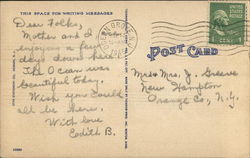 THIS SPACE FOR WRITING MESSAGES
Dear Folks,
Mother and I
enjoying a few
days down here.
The Ocean was
beautiful today.
Wish you could
all be here.
With love
Edith B.
OCEAN GROVE
POST CARD
Mr & Mrs. J. Greeve
New Hampton
Orange Co., N.Y.